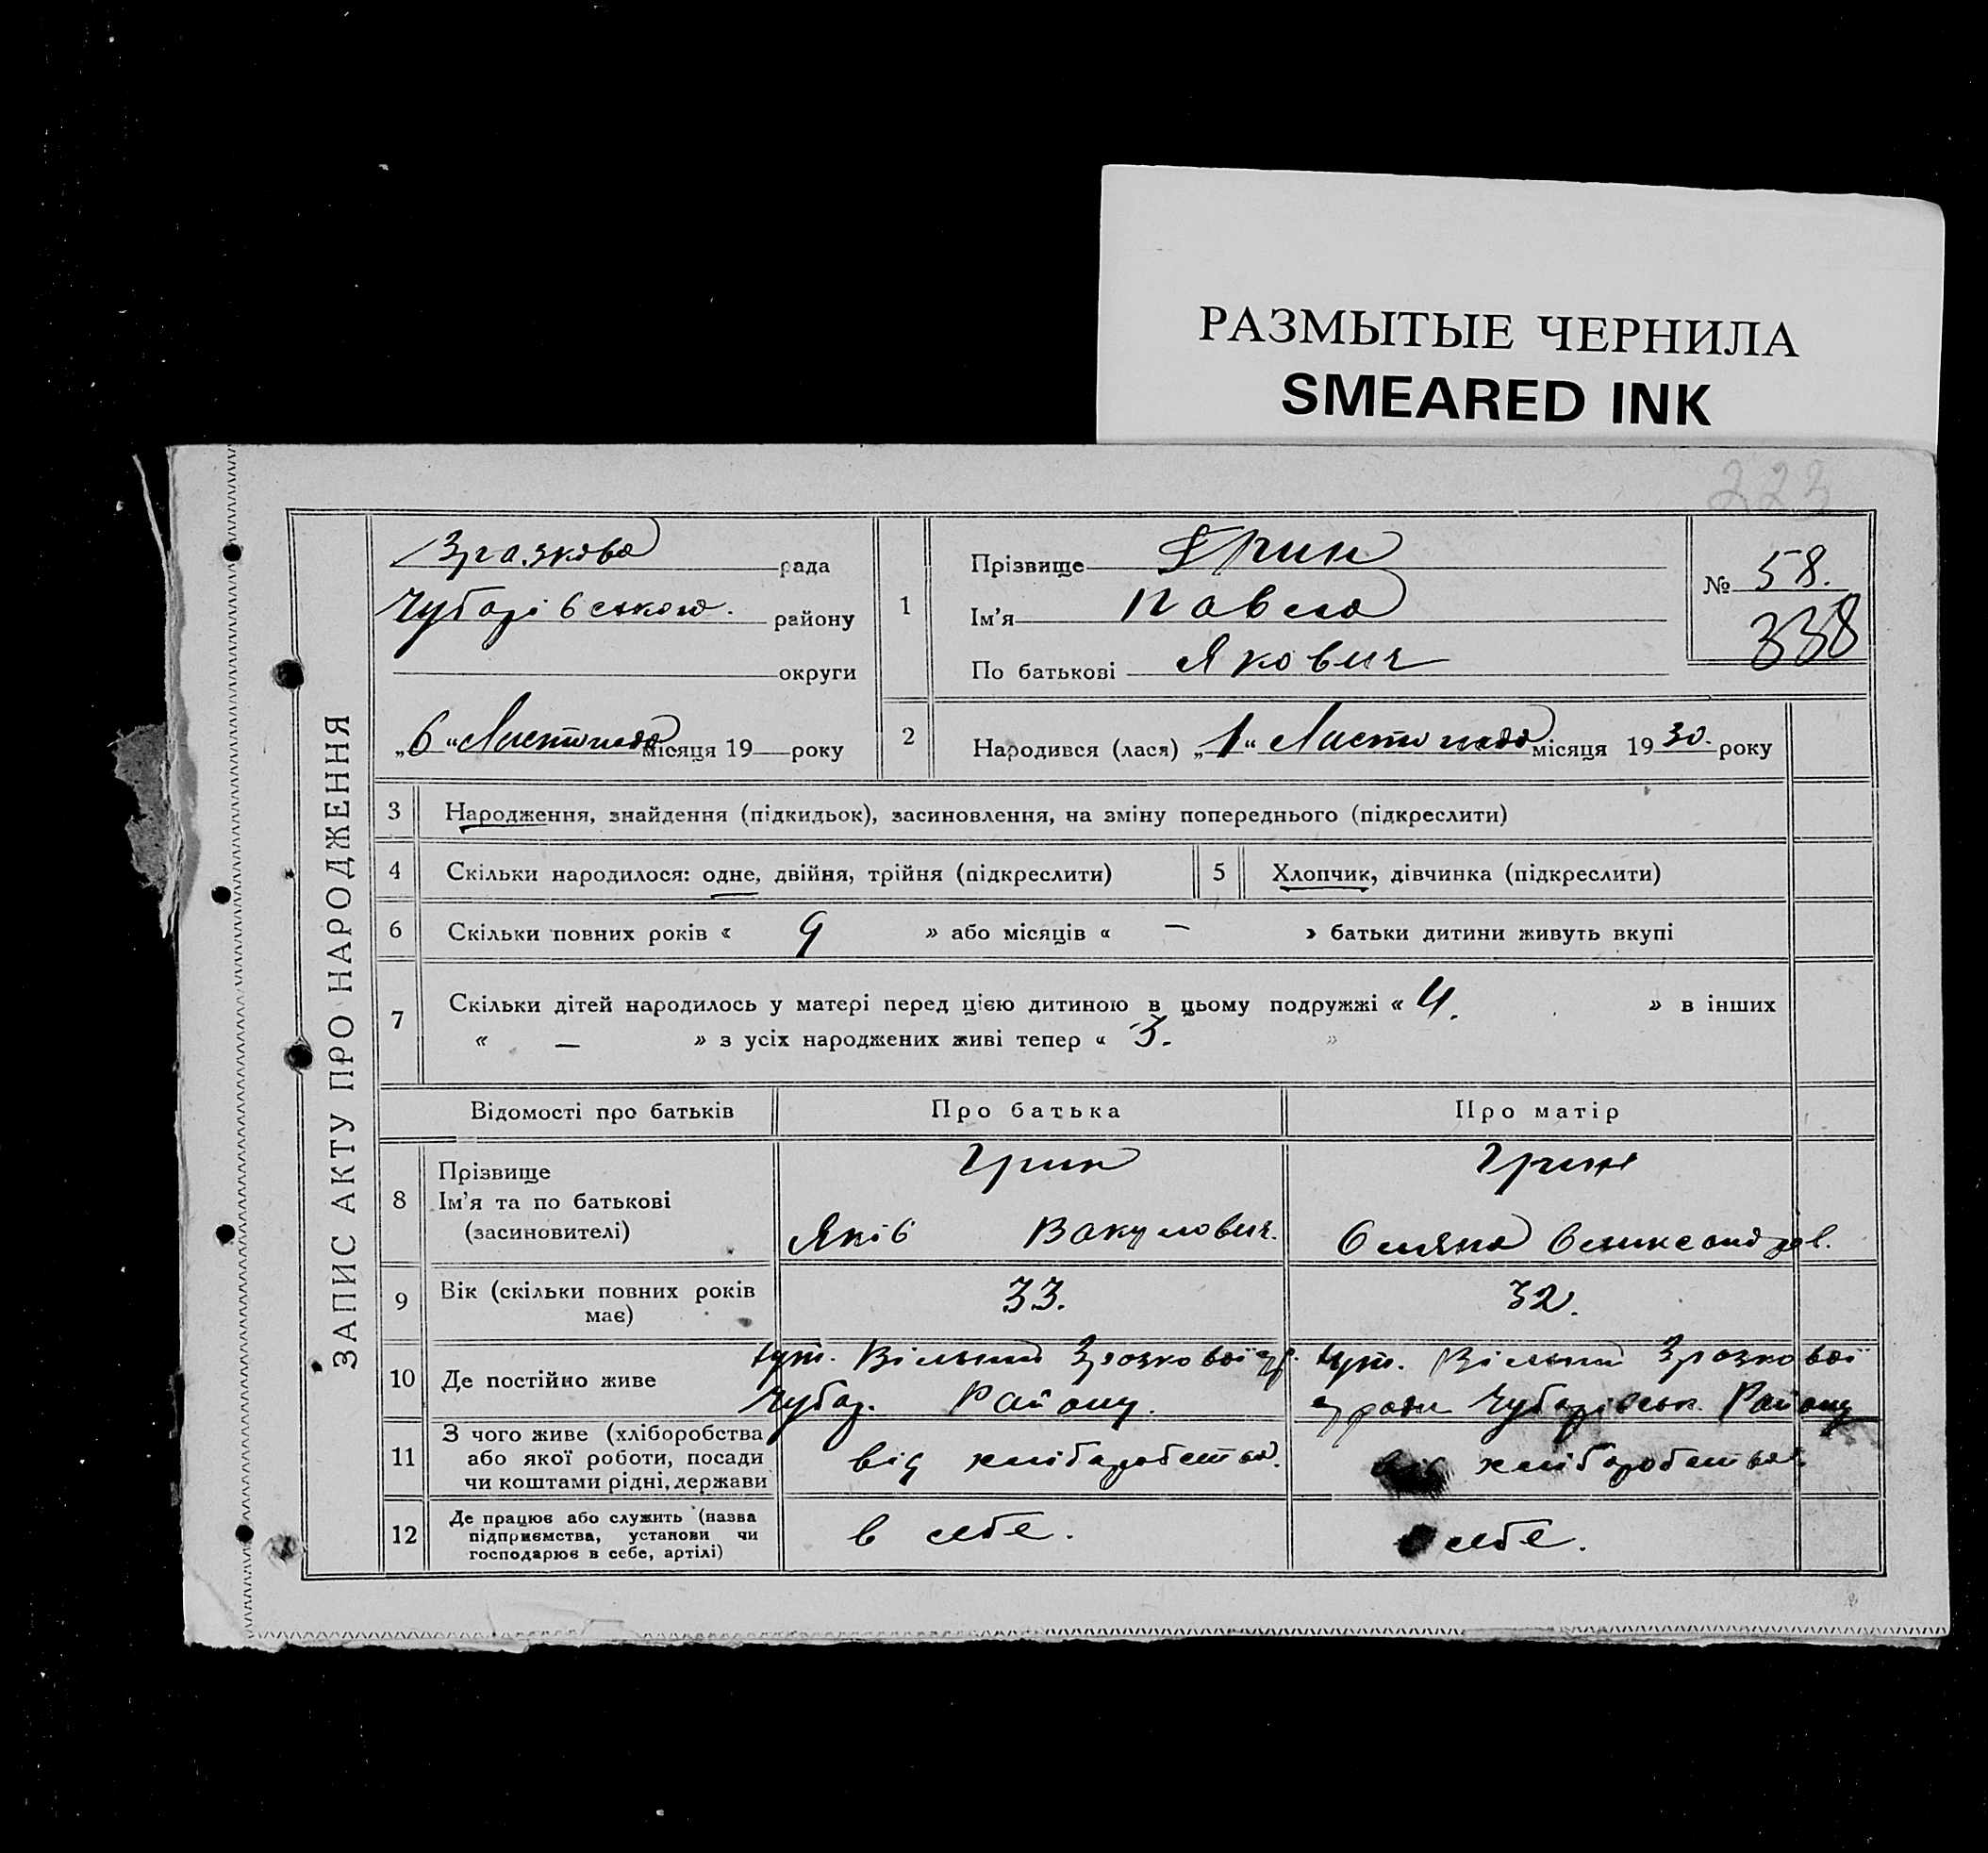 РАЗМЫТЫЕ ЧЕРНИЛА
SMEARED INK
223
ЗАПИС АКТУ ПРО НАРОДЖЕННЯ
Зразкова рада
Чубарівського району
округи
„6“ Листопада місяця 19 року
1
Прізвище Грин
Ім'я Павло
По батькові Якович
№ 58.
338
2
Народився (лася) „1“ Листопада місяця 1930. року
3 Народження, знайдення (підкидьок), засиновлення, на зміну попереднього (підкреслити)
4 Скільки народилося: одне, двійня, трійня (підкреслити)
5 Хлопчик, дівчинка (підкреслити)
6 Скільки повних років « 9 » або місяців « — » батьки дитини живуть вкупі
7 Скільки дітей народилось у матері перед цією дитиною в цьому подружжі « 4. » в інших
« — » з усіх народжених живі тепер « 3. »
Відомості про батьків Про батька Про матір
8
Прізвище
Ім'я та по батькові
(засиновителі)
Грин
Яків Вакулович.
Грин
Оляна Олександров.
9
Вік (скільки повних років
має)
33.
32.
10 Де постійно живе
хут. Вільний Зразкової
Чубар. Району.
хут. Вільний Зразкової
ради Чубарівськ. Району
11
З чого живе (хліборобства
або якої роботи, посади
чи коштами рідні, держави
від хліборобства.
від хліборобства.
12
Де працює або служить (назва
підприємства, установи чи
господарює в себе, артілі)
в себе.
в себе.